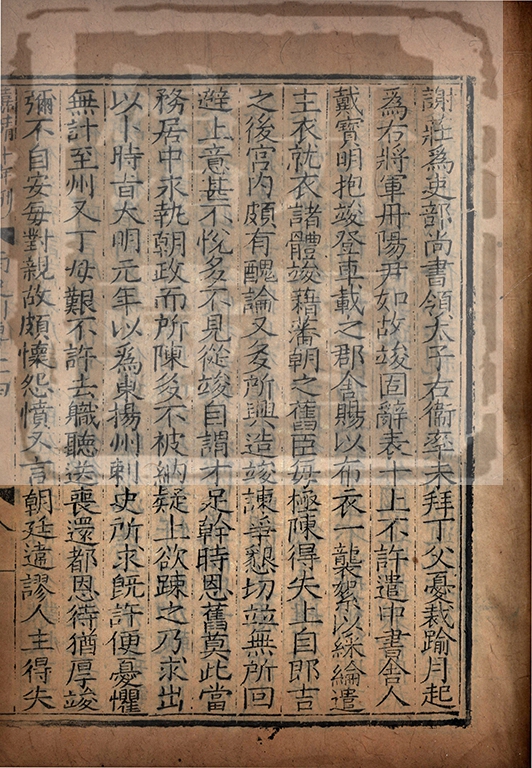 謝莊爲吏部尚書領太子右衞率未拜丁父憂裁踰月起
爲右將軍丹陽尹如故竣固辭表十上不許遣中書舍人
戴寶明抱竣登車載之郡舍賜以布衣一襲絮以綵綸遣
主衣就衣諸體竣藉蕃朝之舊臣每極陳得失上自即吉
之後宮內頗有醜論又多所興造竣諫爭懇切竝無所回
避上意甚不悅多不見從竣自謂才足幹時恩舊莫比當
務居中求執朝政而所陳多不被納疑上欲踈之乃求出
以卜時旨大明元年以爲東揚州刺史所求旣許便憂懼
無計至州又丁母艱不許去職聽送喪還都恩待猶厚竣
彌不自安每對親故頗懷怨憤又言朝廷違謬人主得失
嘉靖十年刊